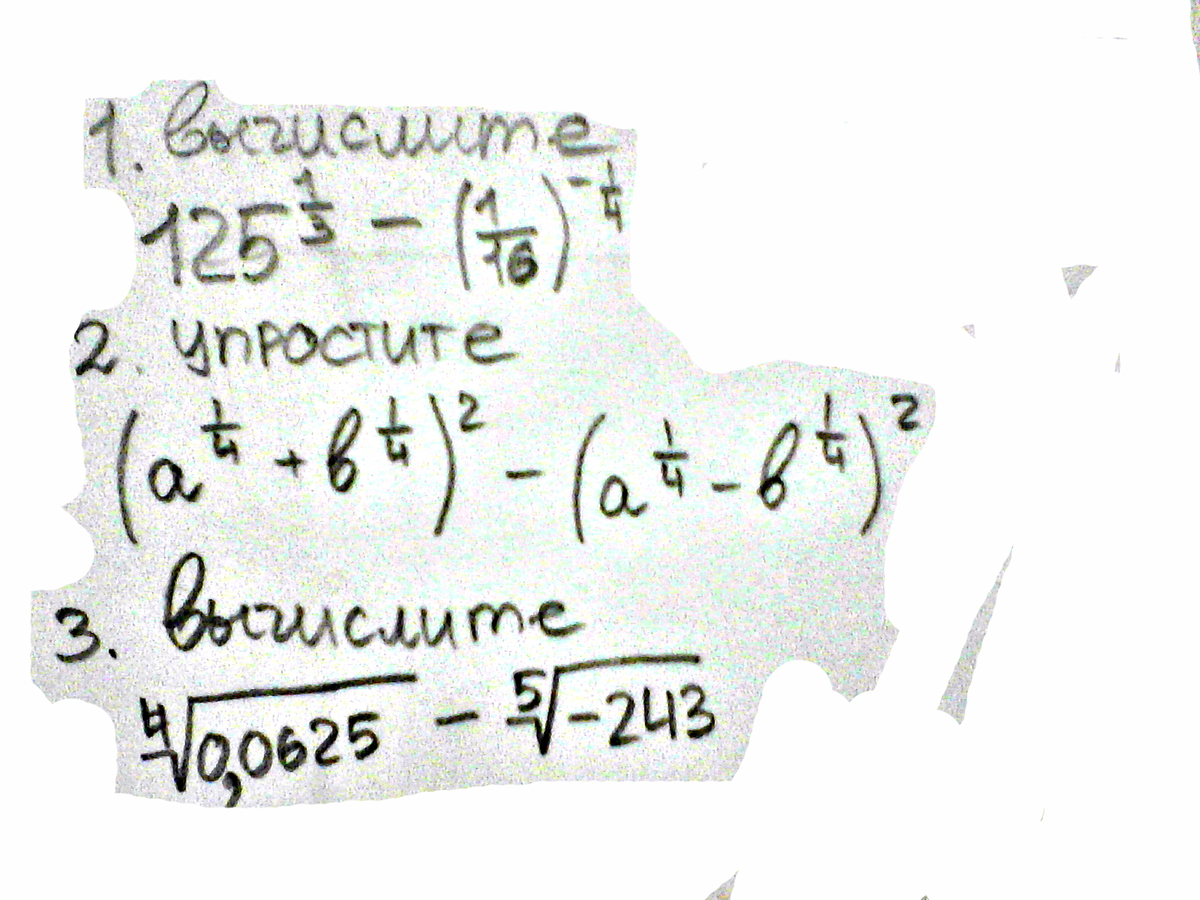 1. Вычислите
125^(1/3) − (1/16)^(−1/4)
2. упростите
(a^(1/4) + в^(1/4))² − (a^(1/4) − в^(1/4))²
3. Вычислите
⁴√0,0625 − ⁵√−243